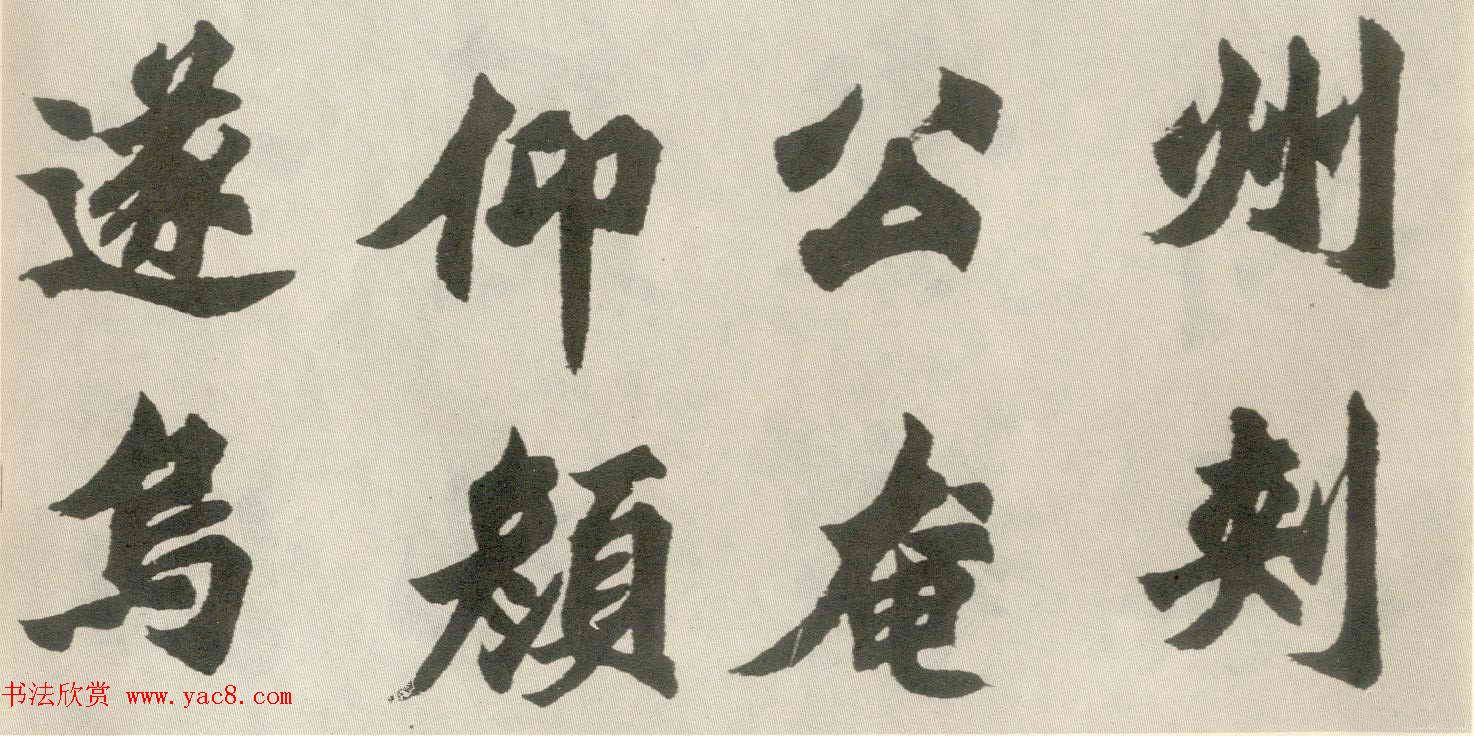 州刺
公奄
仰顏
遂烏
书法欣赏 www.yac8.com